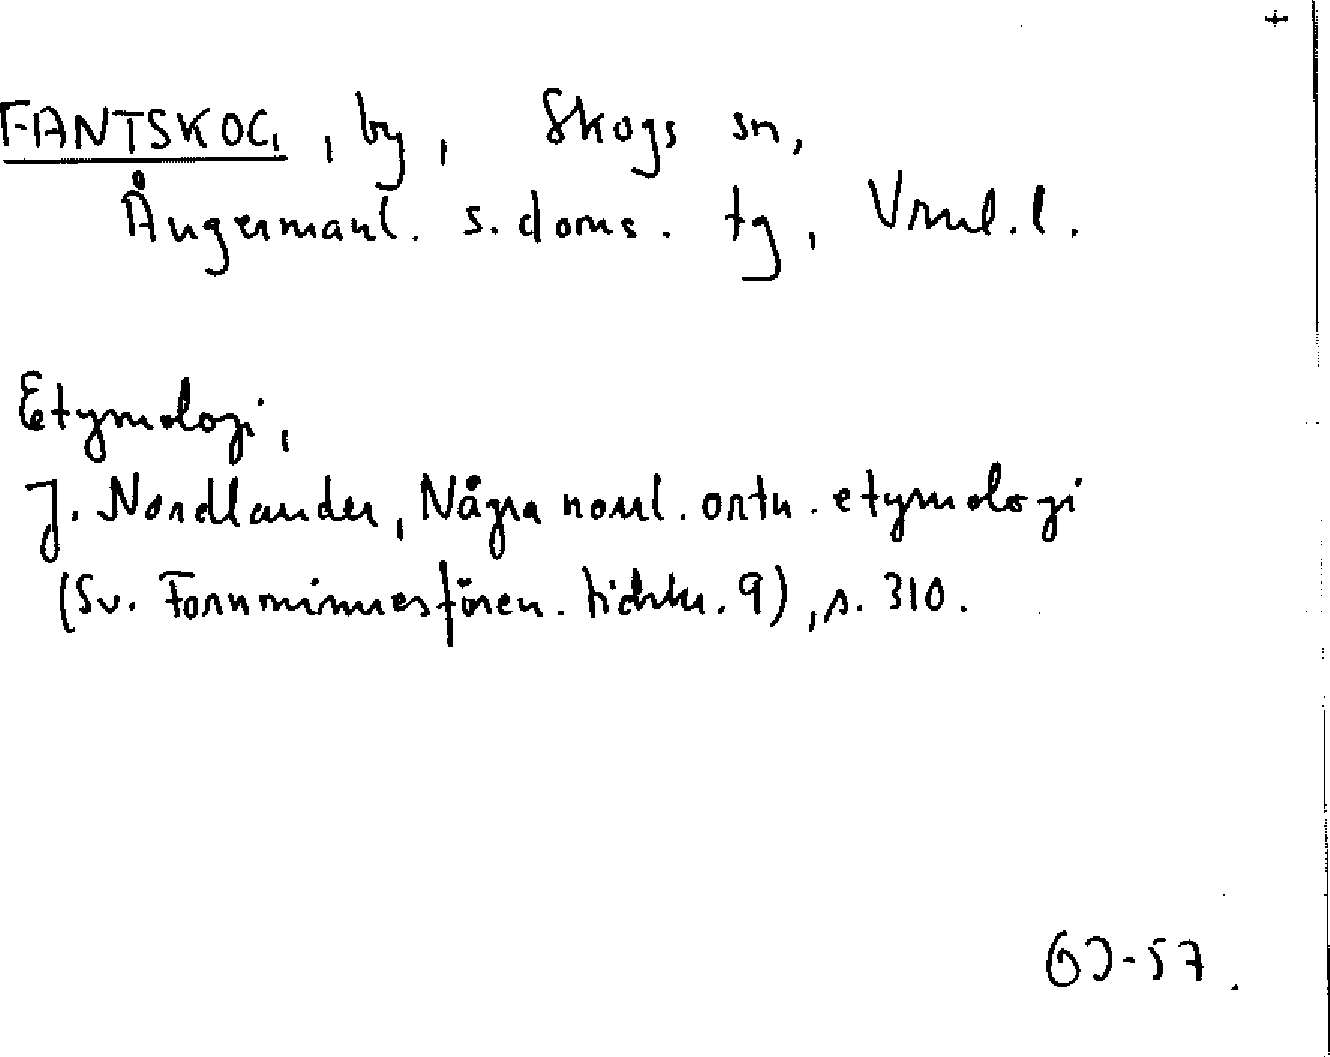 +
FANTSKOG, by, Skogs sn,
Ångermanl. s. doms. tg, Vrnl. l.
Etymologi,
J. Nordlander, Några norrl. ortn. etymologi
(Sv. Fornminnesfören. tidskr. 9), s. 310.
GJ-57.